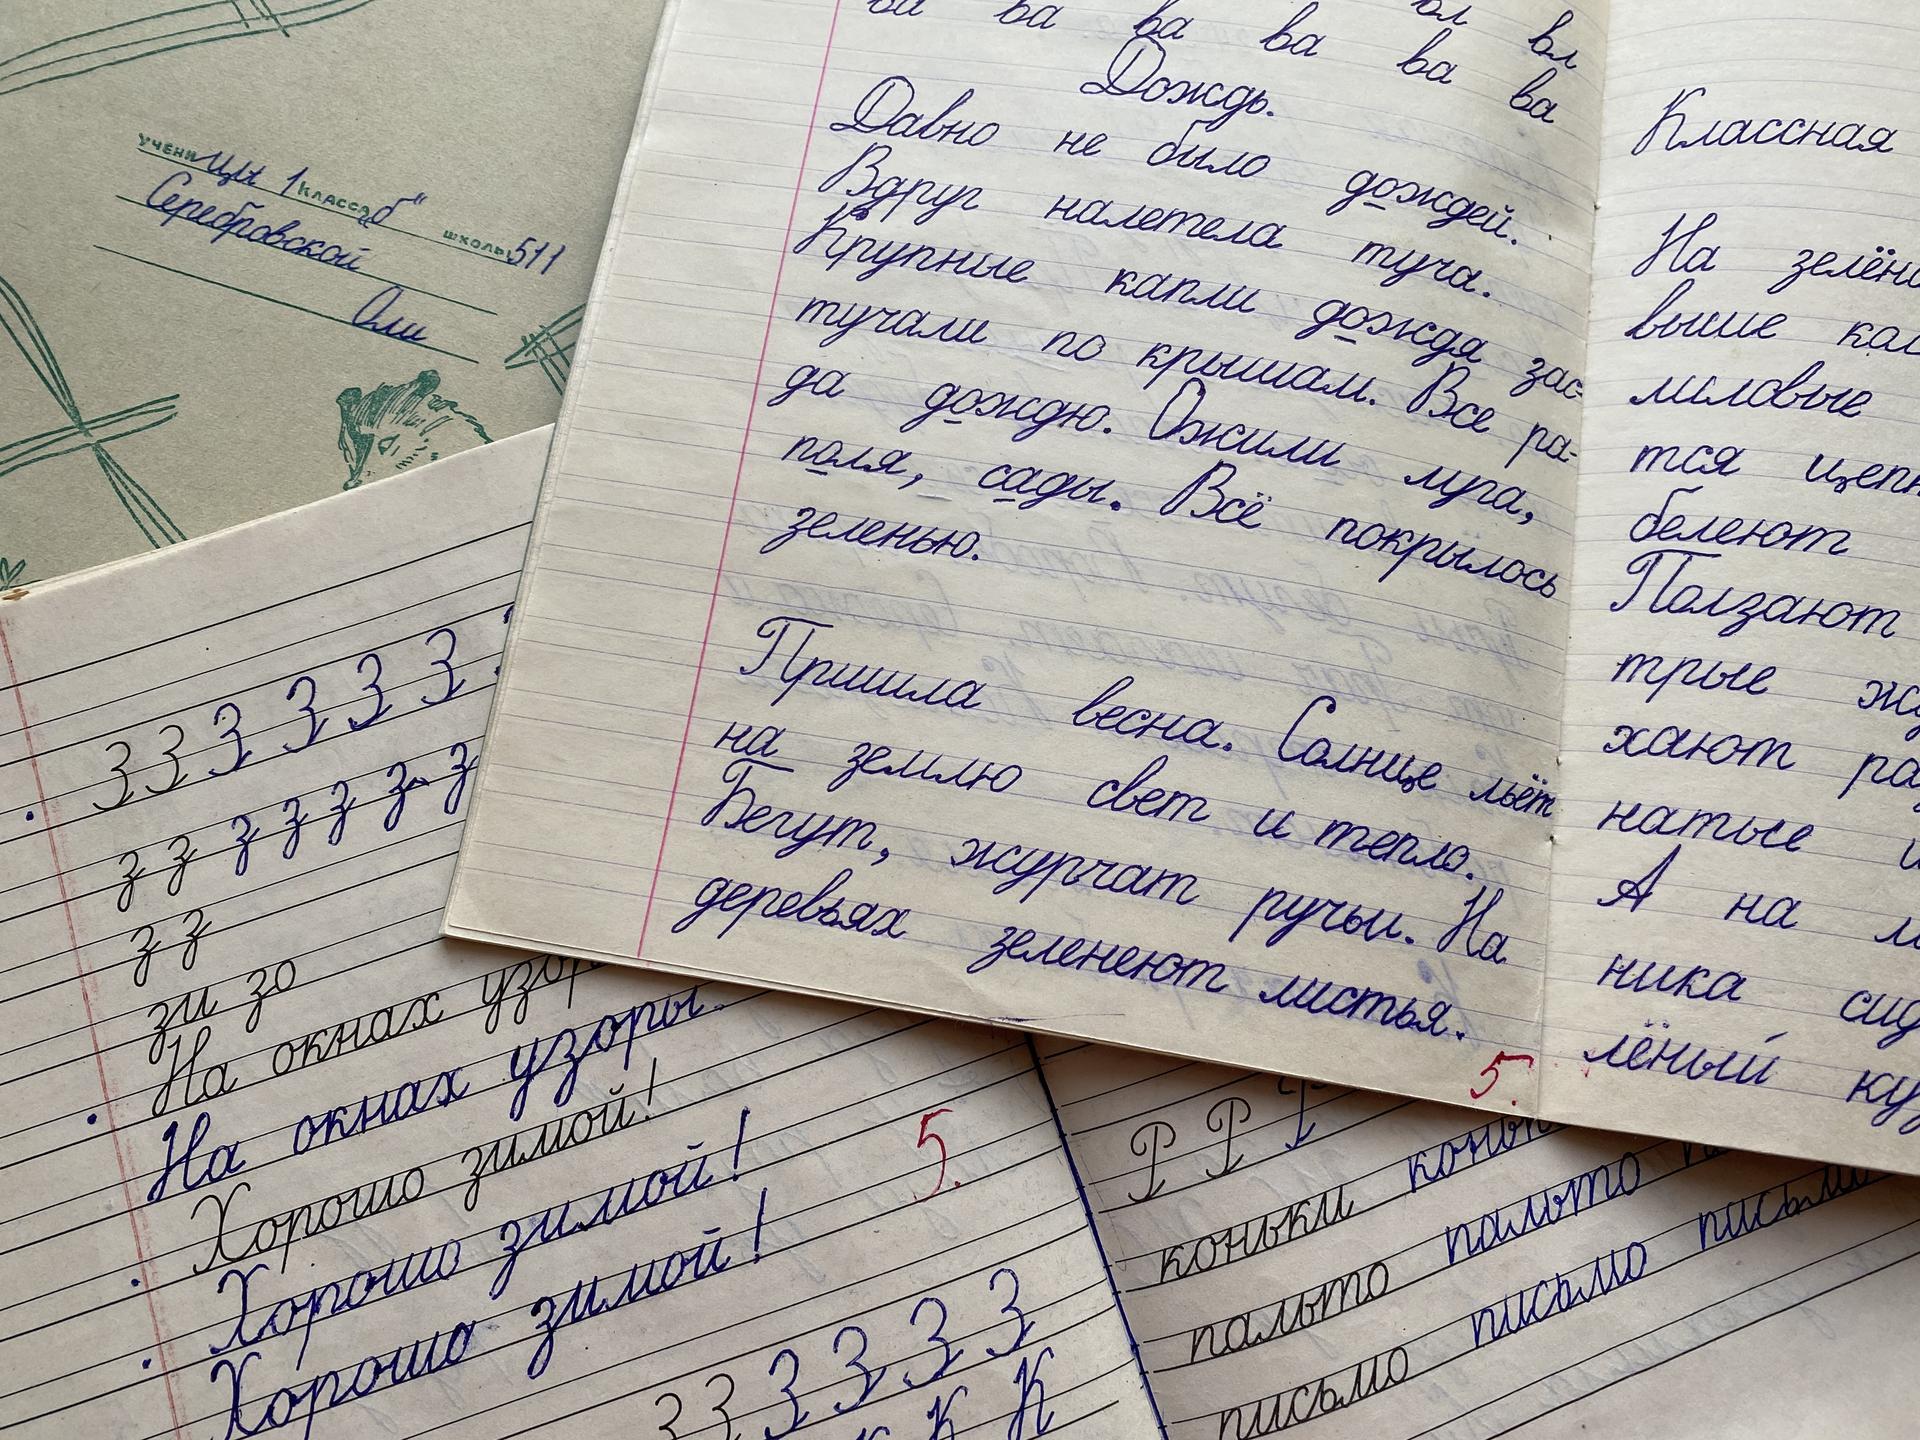 ученицы 1 класса „б"
школы 511
Серебровской
Оли
ва ва ва ва ва ва
вл вл
Дождь.
Давно не было дождей.
Вдруг налетела туча.
Крупные капли дождя зас-
тучали по крышам. Все ра-
да дождю. Ожили луга,
поля, сады. Всё покрылось
зеленью.
Пришла весна. Солнце льёт
на землю свет и тепло.
Бегут, журчат ручьи. На
деревьях зеленеют листья.
5.
Классная
На зелёно
выше
миловые
тся
белеют
Ползают
трые
хают
натые
А на
ника
лёный
З З З З З З
з з з з з з з
з з
зи зо
На окнах узор
На окнах узоры.
Хорошо зимой!
Хорошо зимой!
Хорошо зимой!
5.
З З З З З З
К К К
Р Р Р
коньки конь
пальто пальто
письмо письмо письмо
письмо